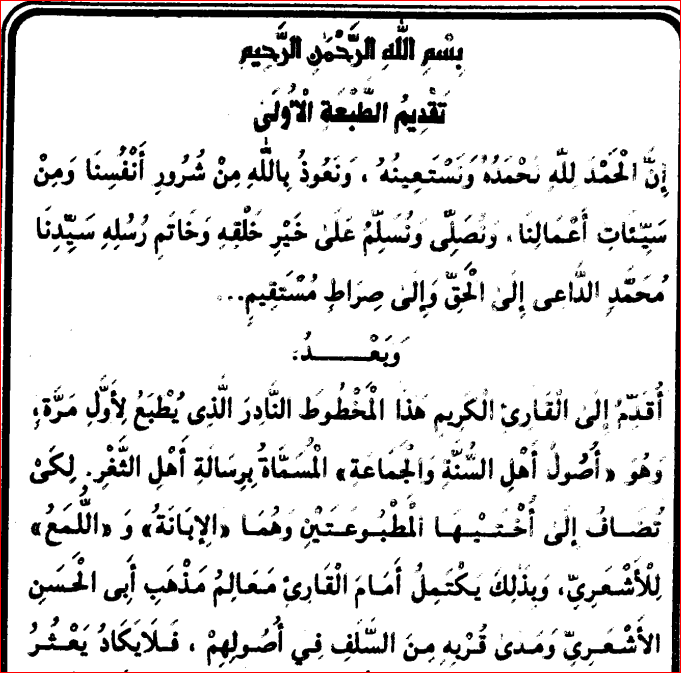 بِسْمِ اللَّهِ الرَّحْمٰنِ الرَّحِيمِ
تَقْدِيمُ الطَّبْعَةِ الْأُولَىٰ
إِنَّ الْحَمْدَ لِلَّهِ نَحْمَدُهُ وَنَسْتَعِينُهُ ، وَنَعُوذُ بِاللَّهِ مِنْ شُرُورِ أَنْفُسِنَا وَمِنْ
سَيِّئَاتِ أَعْمَالِنَا ، وَنُصَلِّى وَنُسَلِّمُ عَلَىٰ خَيْرِ خَلْقِهِ وَخَاتَمِ رُسُلِهِ سَيِّدِنَا
مُحَمَّدٍ الدَّاعِى إِلَىٰ الْحَقِّ وَإِلَىٰ صِرَاطٍ مُسْتَقِيمٍ...
وَبَعْـــــدُ:
أُقَدِّمُ إِلَىٰ الْقَارِئِ الْكَرِيمِ هَذَا الْمَخْطُوطَ النَّادِرَ الَّذِى يُطْبَعُ لِأَوَّلِ مَرَّةٍ،
وَهُوَ «أُصُولُ أَهْلِ السُّنَّةِ وَالْجَمَاعَة» الْمُسَمَّاةُ بِرِسَالَةِ أَهْلِ الثَّغْرِ. لِكَىْ
تُضَافُ إِلَى أُخْتَيْهَا الْمَطْبُوعَتَيْنِ وَهُمَا «الإِبَانَةُ» وَ «اللُّمَعُ»
لِلْأَشْعَرِيِّ، وَبِذَلِكَ يَكْتَمِلُ أَمَامَ الْقَارِئِ مَعَالِمُ مَذْهَبِ أَبِى الْحَسَنِ
الأَشْعَرِيِّ وَمَدَى قُرْبِهِ مِنَ السَّلَفِ فِي أُصُولِهِمْ ، فَلَا يَكَادُ يَعْثُرُ